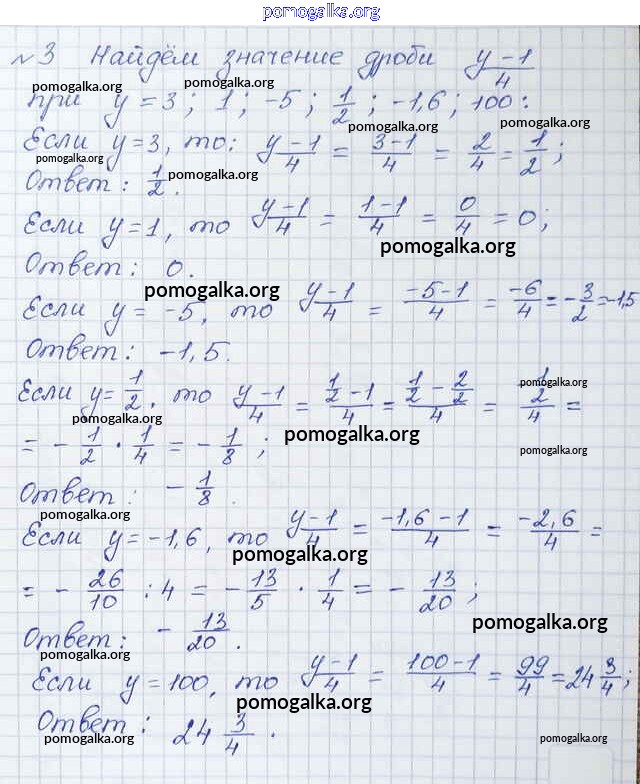 pomogalka.org
№3 Найдём значение дроби (y-1)/4
pomogalka.org pomogalka.org
при y = 3; 1; -5; 1/2; -1,6; 100:
pomogalka.org pomogalka.org
Если y=3, то: (y-1)/4 = (3-1)/4 = 2/4 = 1/2;
pomogalka.org
Ответ: 1/2. pomogalka.org
Если y=1, то (y-1)/4 = (1-1)/4 = 0/4 = 0;
pomogalka.org
Ответ: 0.
pomogalka.org
Если y = -5, то (y-1)/4 = (-5-1)/4 = -6/4 = -3/2 = -1,5
Ответ: -1,5.
pomogalka.org
Если y= 1/2, то (y-1)/4 = (1/2 - 1)/4 = (1/2 - 2/2)/4 = (1/2)/4 =
pomogalka.org
pomogalka.org
= - 1/2 · 1/4 = - 1/8;
pomogalka.org
Ответ: - 1/8.
pomogalka.org
Если y= -1,6, то (y-1)/4 = (-1,6-1)/4 = -2,6/4 =
pomogalka.org
= - 26/10 : 4 = - 13/5 · 1/4 = - 13/20;
pomogalka.org
Ответ: - 13/20.
pomogalka.org
Если y=100, то (y-1)/4 = (100-1)/4 = 99/4 = 24 3/4;
pomogalka.org
Ответ: 24 3/4.
pomogalka.org pomogalka.org pomogalka.org